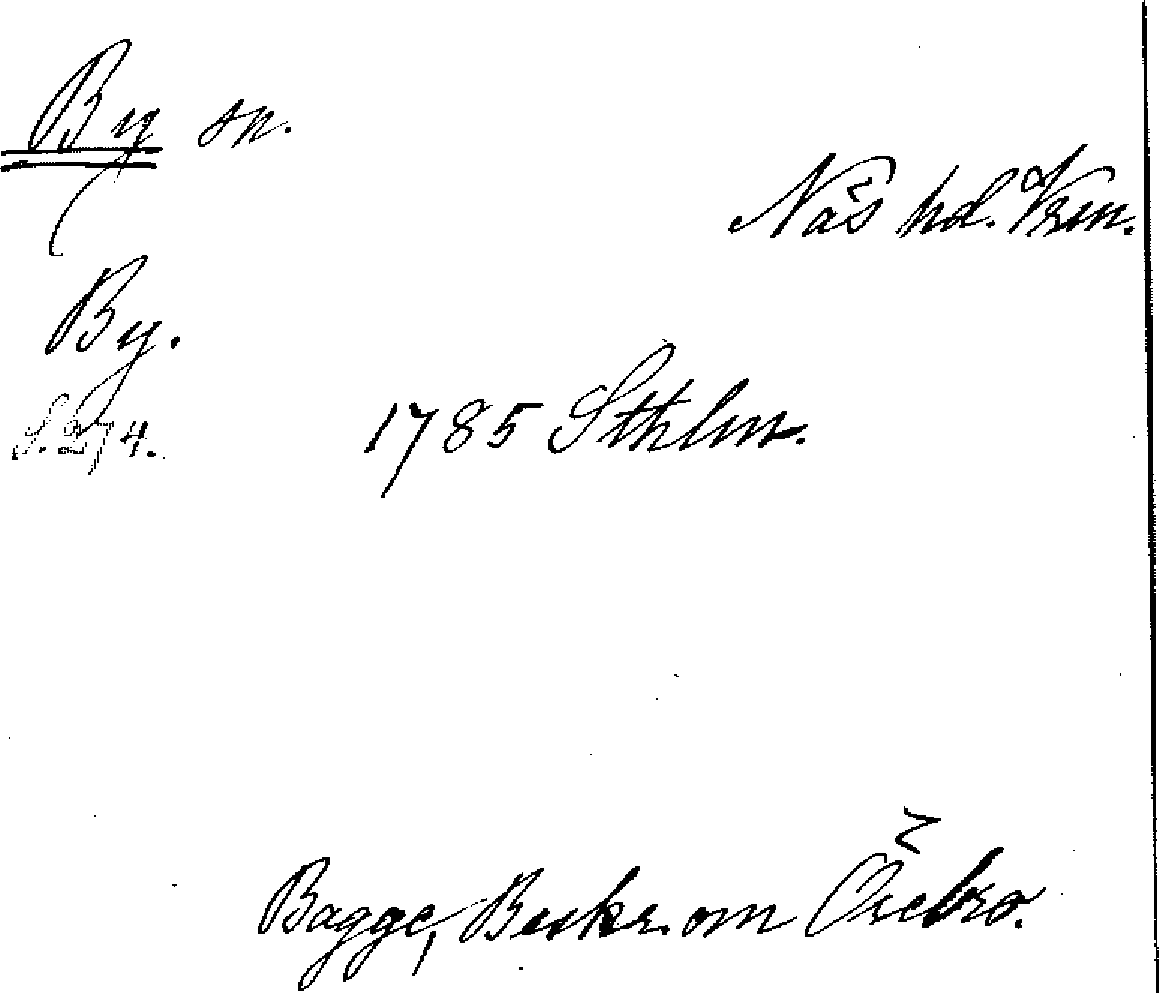 By sn.
Näs hd. Vrm.
By.
S. 274. 1785 Sthlm.
Bagge, Beskr. om Örebro.